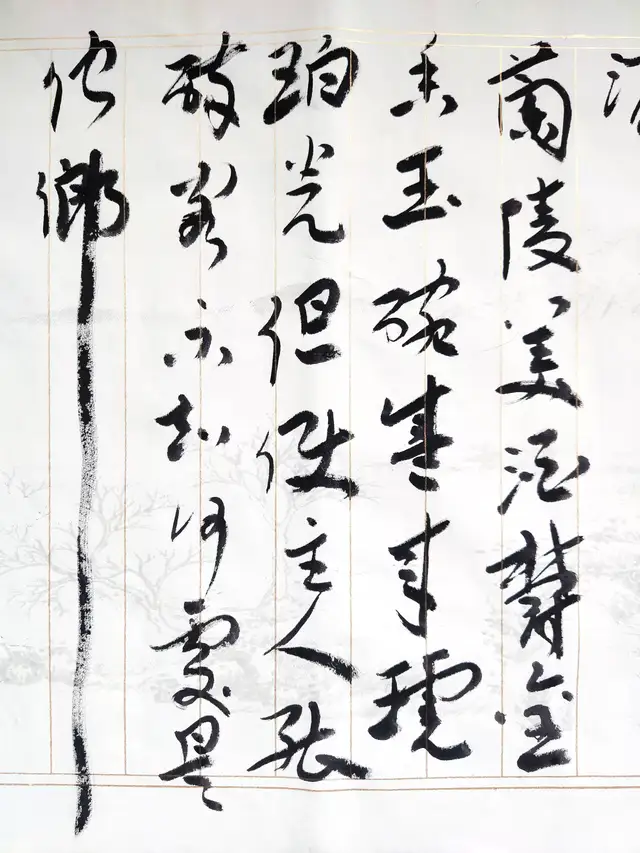 蘭陵美酒鬱金
香玉碗盛来琥
珀光但使主人能
醉客不知何處是
他鄉